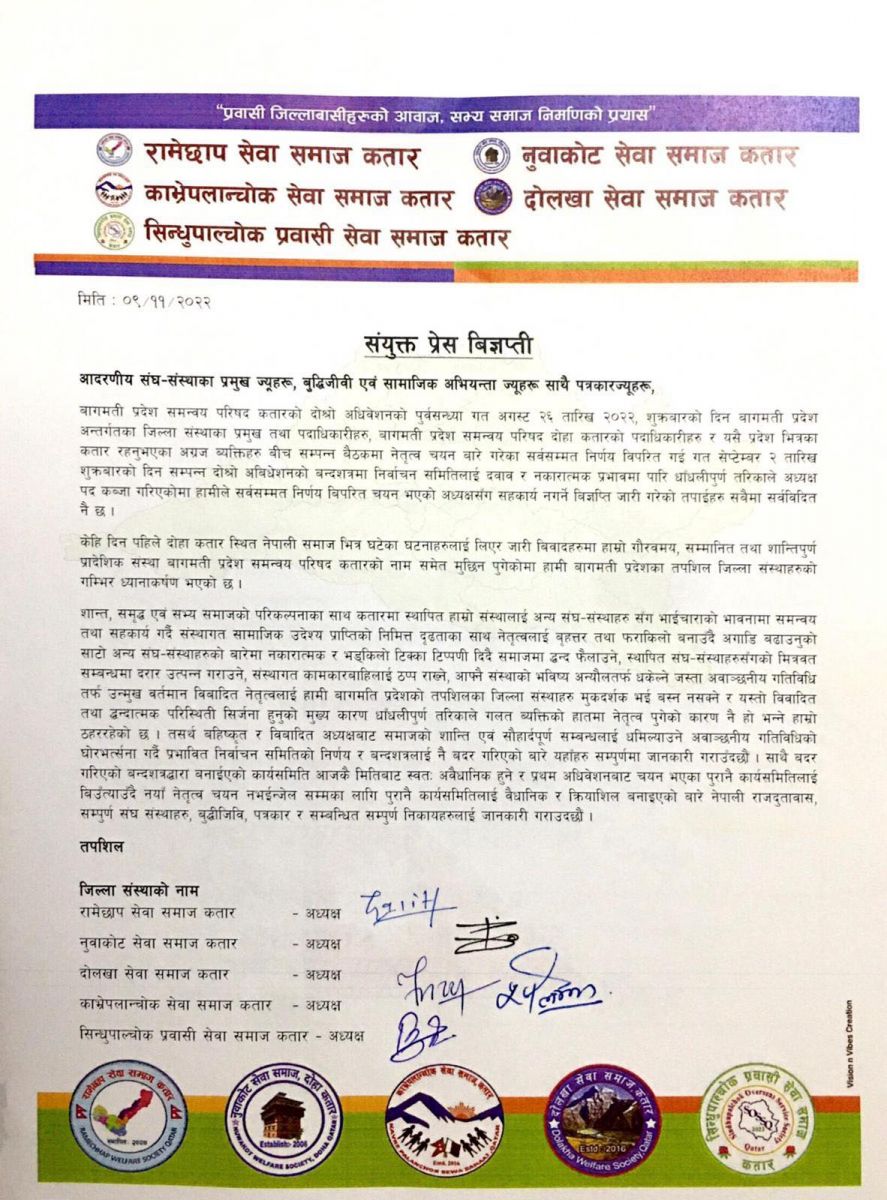 “प्रवासी जिल्लाबासीहरुको आवाज, सभ्य समाज निर्माणको प्रयास”
रामेछाप सेवा समाज कतार
नुवाकोट सेवा समाज कतार
काभ्रेपलान्चोक सेवा समाज कतार
दोलखा सेवा समाज कतार
सिन्धुपाल्चोक प्रवासी सेवा समाज कतार
मिति : ०९/११/२०२२
संयुक्त प्रेस बिज्ञप्ती
आदरणीय संघ-संस्थाका प्रमुख ज्यूहरू, बुद्धिजीवी एवं सामाजिक अभियन्ता ज्यूहरू साथै पत्रकारज्यूहरू,
बागमती प्रदेश समन्वय परिषद कतारको दोश्रो अधिवेशनको पुर्वसन्ध्या गत अगस्ट २६ तारिख २०२२, शुक्रबारको दिन बागमती प्रदेश
अन्तर्गतका जिल्ला संस्थाका प्रमुख तथा पदाधिकारीहरु, बागमती प्रदेश समन्वय परिषद दोहा कतारको पदाधिकारीहरु र यसै प्रदेश भित्रका
कतार रहनुभएका अग्रज ब्यक्तिहरु बीच सम्पन्न बैठकमा नेतृत्व चयन बारे गरेका सर्वसम्मत निर्णय विपरित गई गत सेप्टेम्बर २ तारिख
शुक्रबारको दिन सम्पन्न दोश्रो अबिधेशनको बन्दशत्रमा निर्वाचन समितिलाई दवाव र नकारात्मक प्रभावमा पारि धाँधलीपुर्ण तरिकाले अध्यक्ष
पद कब्जा गरिएकोमा हामीले सर्वसम्मत निर्णय बिपरित चयन भएको अध्यक्षसंग सहकार्य नगर्ने विज्ञप्ति जारी गरेको तपाईहरु सबैमा सर्वविदित
नै छ ।
केहि दिन पहिले दोहा कतार स्थित नेपाली समाज भित्र घटेका घटनाहरुलाई लिएर जारी बिवादहरुमा हाम्रो गौरवमय, सम्मानित तथा शान्तिपुर्ण
प्रादेशिक संस्था बागमती प्रदेश समन्वय परिषद कतारको नाम समेत मुछिन पुगेकोमा हामी बागमती प्रदेशका तपशिल जिल्ला संस्थाहरुको
गम्भिर ध्यानाकर्षण भएको छ ।
शान्त, समृद्ध एवं सभ्य समाजको परिकल्पनाका साथ कतारमा स्थापित हाम्रो संस्थालाई अन्य संघ-संस्थाहरु संग भाईचाराको भावनामा समन्वय
तथा सहकार्य गर्दै संस्थागत सामाजिक उदेश्य प्राप्तिको निमित्त दृढताका साथ नेतृत्वलाई बृहत्तर तथा फराकिलो बनाउँदै अगाडि बढाउनुको
साटो अन्य संघ-संस्थाहरुको बारेमा नकारात्मक र भड्किलो टिक्का टिप्पणी दिदै समाजमा द्वन्द फैलाउने, स्थापित संघ-संस्थाहरुसंगको मित्रवत
सम्बन्धमा दरार उत्पन्न गराउने, संस्थागत कामकारबाहिलाई ठप्प राख्ने, आफ्नै संस्थाको भविष्य अन्यौलतर्फ धकेल्ने जस्ता अवाञ्छनीय गतिविधि
तर्फ उन्मुख वर्तमान बिबादित नेतृत्वलाई हामी बागमति प्रदेशको तपशिलका जिल्ला संस्थाहरु मुकदर्शक भई बस्न नसक्ने र यस्तो बिबादित
तथा द्वन्दात्मक परिस्थिती सिर्जना हुनुको मुख्य कारण धाँधलीपुर्ण तरिकाले गलत ब्यक्तिको हातमा नेतृत्व पुगेको कारण नै हो भन्ने हाम्रो
ठहररहेको छ । तसर्थ बहिष्कृत र बिवादित अध्यक्षबाट समाजको शान्ति एवं सौहार्दपूर्ण सम्बन्धलाई धमिल्याउने अवाञ्छनीय गतिविधिको
घोरभर्त्सना गर्दै प्रभावित निर्वाचन समितिको निर्णय र बन्दशत्रलाई नै बदर गरिएको बारे यहाँहरु सम्पुर्णमा जानकारी गराउँदछौ । साथै बदर
गरिएको बन्दशत्रद्धारा बनाईएको कार्यसमिति आजकै मितिबाट स्वतः अवैधानिक हुने र प्रथम अधिवेशनबाट चयन भएका पुरानै कार्यसमितिलाई
बिउँत्याउँदै नयाँ नेतृत्व चयन नभईन्जेल सम्मका लागि पुरानै कार्यसमितिलाई बैधानिक र क्रियाशिल बनाइएको बारे नेपाली राजदुतावास,
सम्पुर्ण संघ संस्थाहरु, बुद्धीजिवि, पत्रकार र सम्बन्धित सम्पुर्ण निकायहरुलाई जानकारी गराउदछौ ।
तपशिल
जिल्ला संस्थाको नाम
रामेछाप सेवा समाज कतार - अध्यक्ष
नुवाकोट सेवा समाज कतार - अध्यक्ष
दोलखा सेवा समाज कतार - अध्यक्ष
काभ्रेपलान्चोक सेवा समाज कतार - अध्यक्ष
सिन्धुपाल्चोक प्रवासी सेवा समाज कतार - अध्यक्ष
Vision n Vibes Creation
रामेछाप सेवा समाज कतार
RAMECHHAP WELFARE SOCIETY QATAR
नुवाकोट सेवा समाज, दोहा कतार
Establish: 2006
NUWAKOT WELFARE SOCIETY, DOHA QATAR
काभ्रेपलान्चोक सेवा समाज, कतार
Estd. 2016
KAVREPALANCHOK SEWA SAMAJ, QATAR
दोलखा सेवा समाज कतार
Estd: 2016
Dolakha Welfare Society Qatar
सिन्धुपाल्चोक प्रवासी सेवा समाज
कतार
Sindhupalchok Overseas Service Society
Qatar